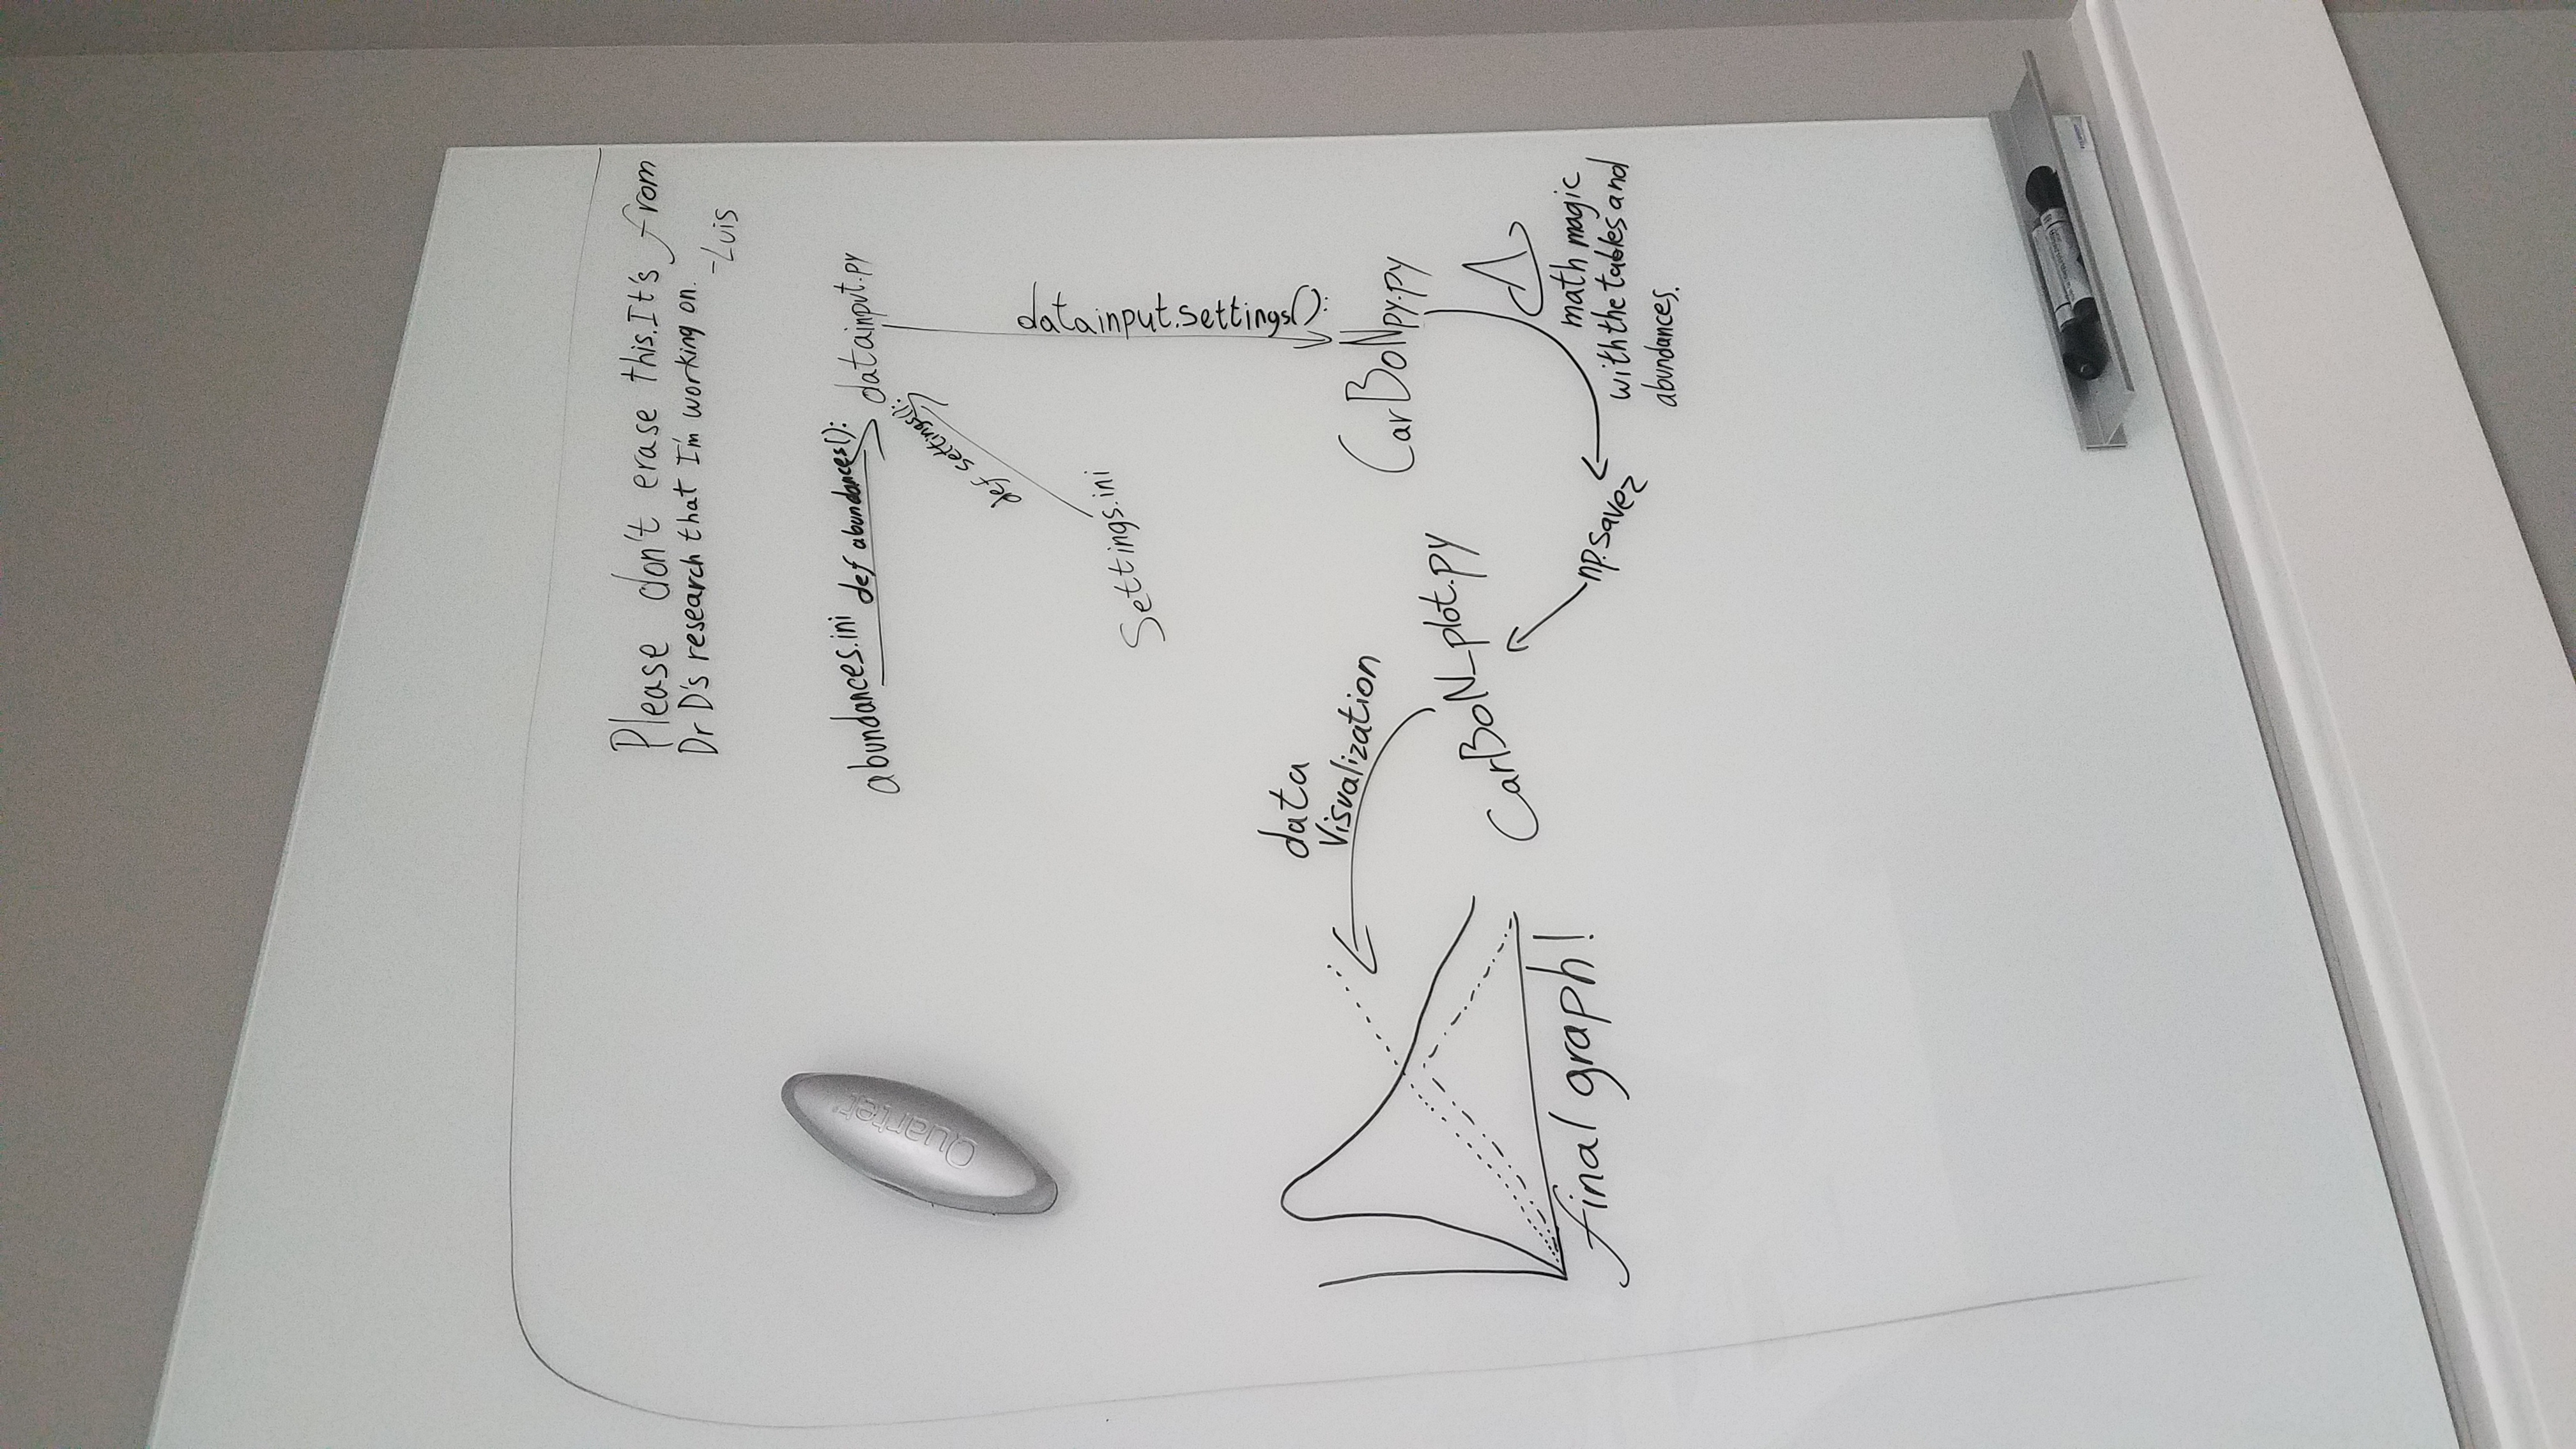 Please don't erase this. It's from
Dr D's research that I'm working on.
-Luis
abundances.ini
def abundances():
datainput.py
def settings():
Settings.ini
datainput.settings():
CarBoNpy.py
math magic
with the tables and
abundances.
np.savez
CarBoN_plot.py
data
Visualization
final graph!
Quartet